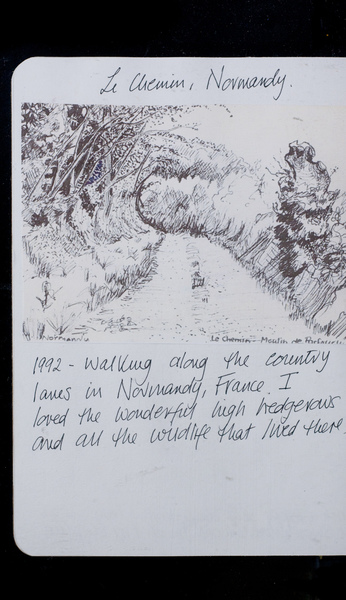 Le Chemin, Normandy.
Normandy
Le Chemin - Moulin de
1992 - Walking along the country
lanes in Normandy, France. I
loved the wonderful high hedgerows
and all the wildlife that lived there.